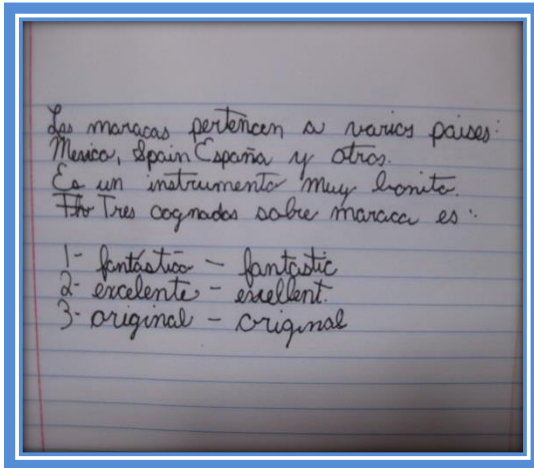 Las maracas pertencen a varios paises:
Mexico, Spain España y otros.
Es un instrumento muy bonito.
Tres cognados sobre maraca es:
1- fantástico - fantastic
2- excelente - excellent.
3- original - original